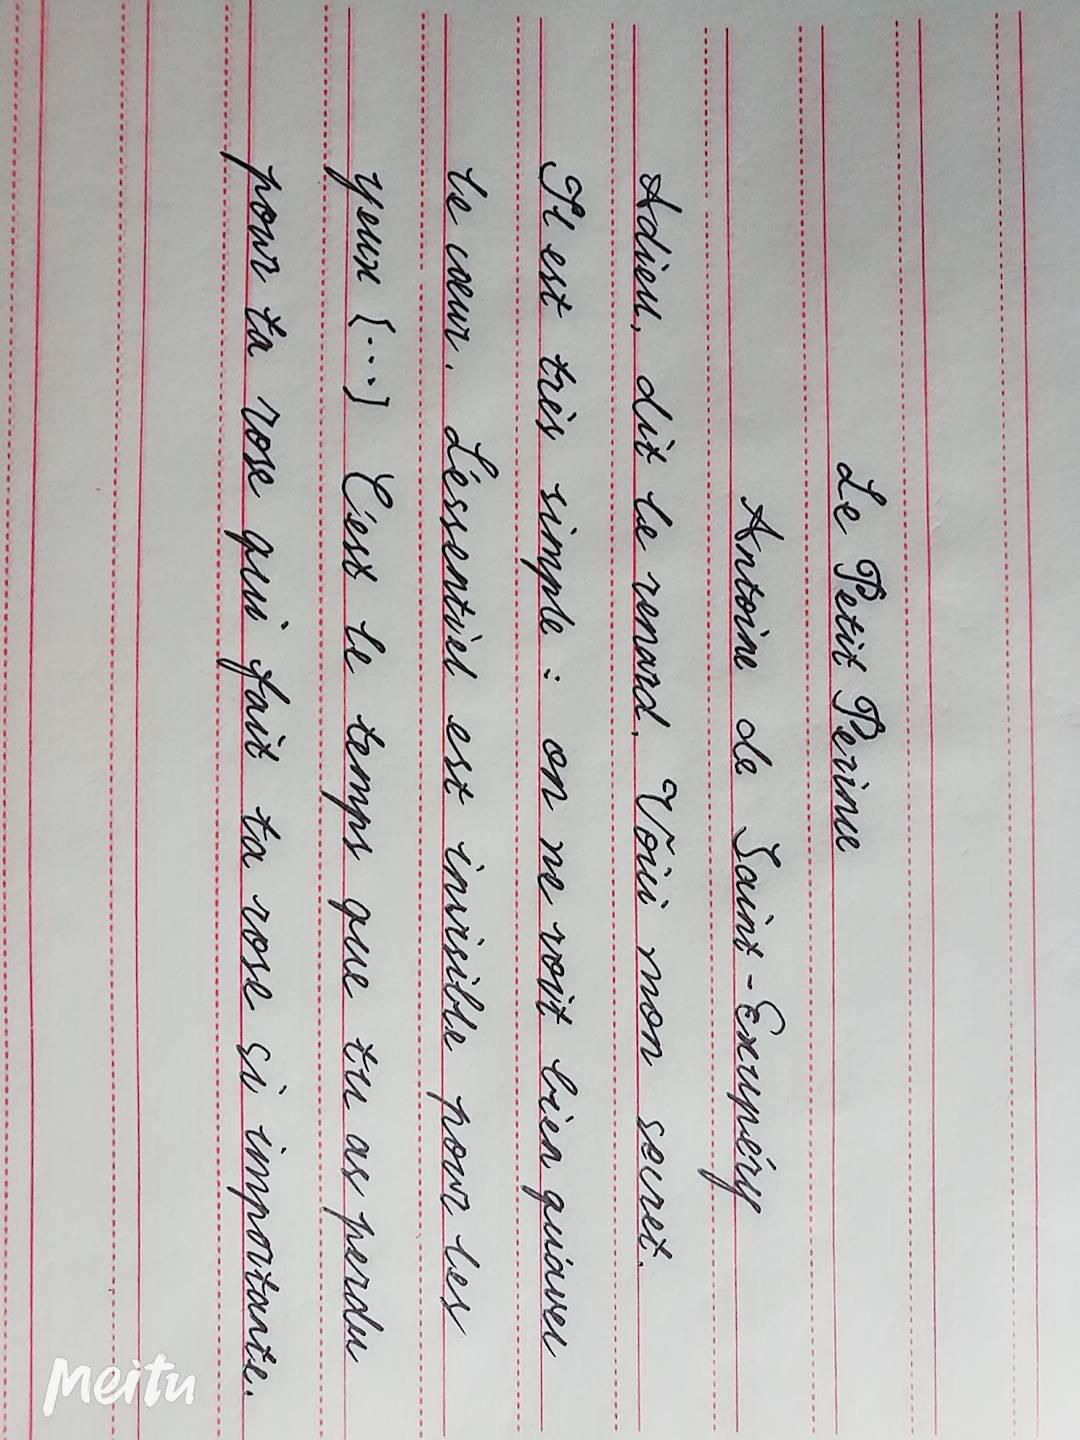 Le Petit Perince
Antoine de Saint-Exupéry
Adieu, dit le renard. Voici mon secret.
Il est très simple : on ne voit bien qu'avec
le cœur. L'essentiel est invisible pour les
yeux [...] C'est le temps que tu as perdu
pour ta rose qui fait ta rose si importante.
Meitu